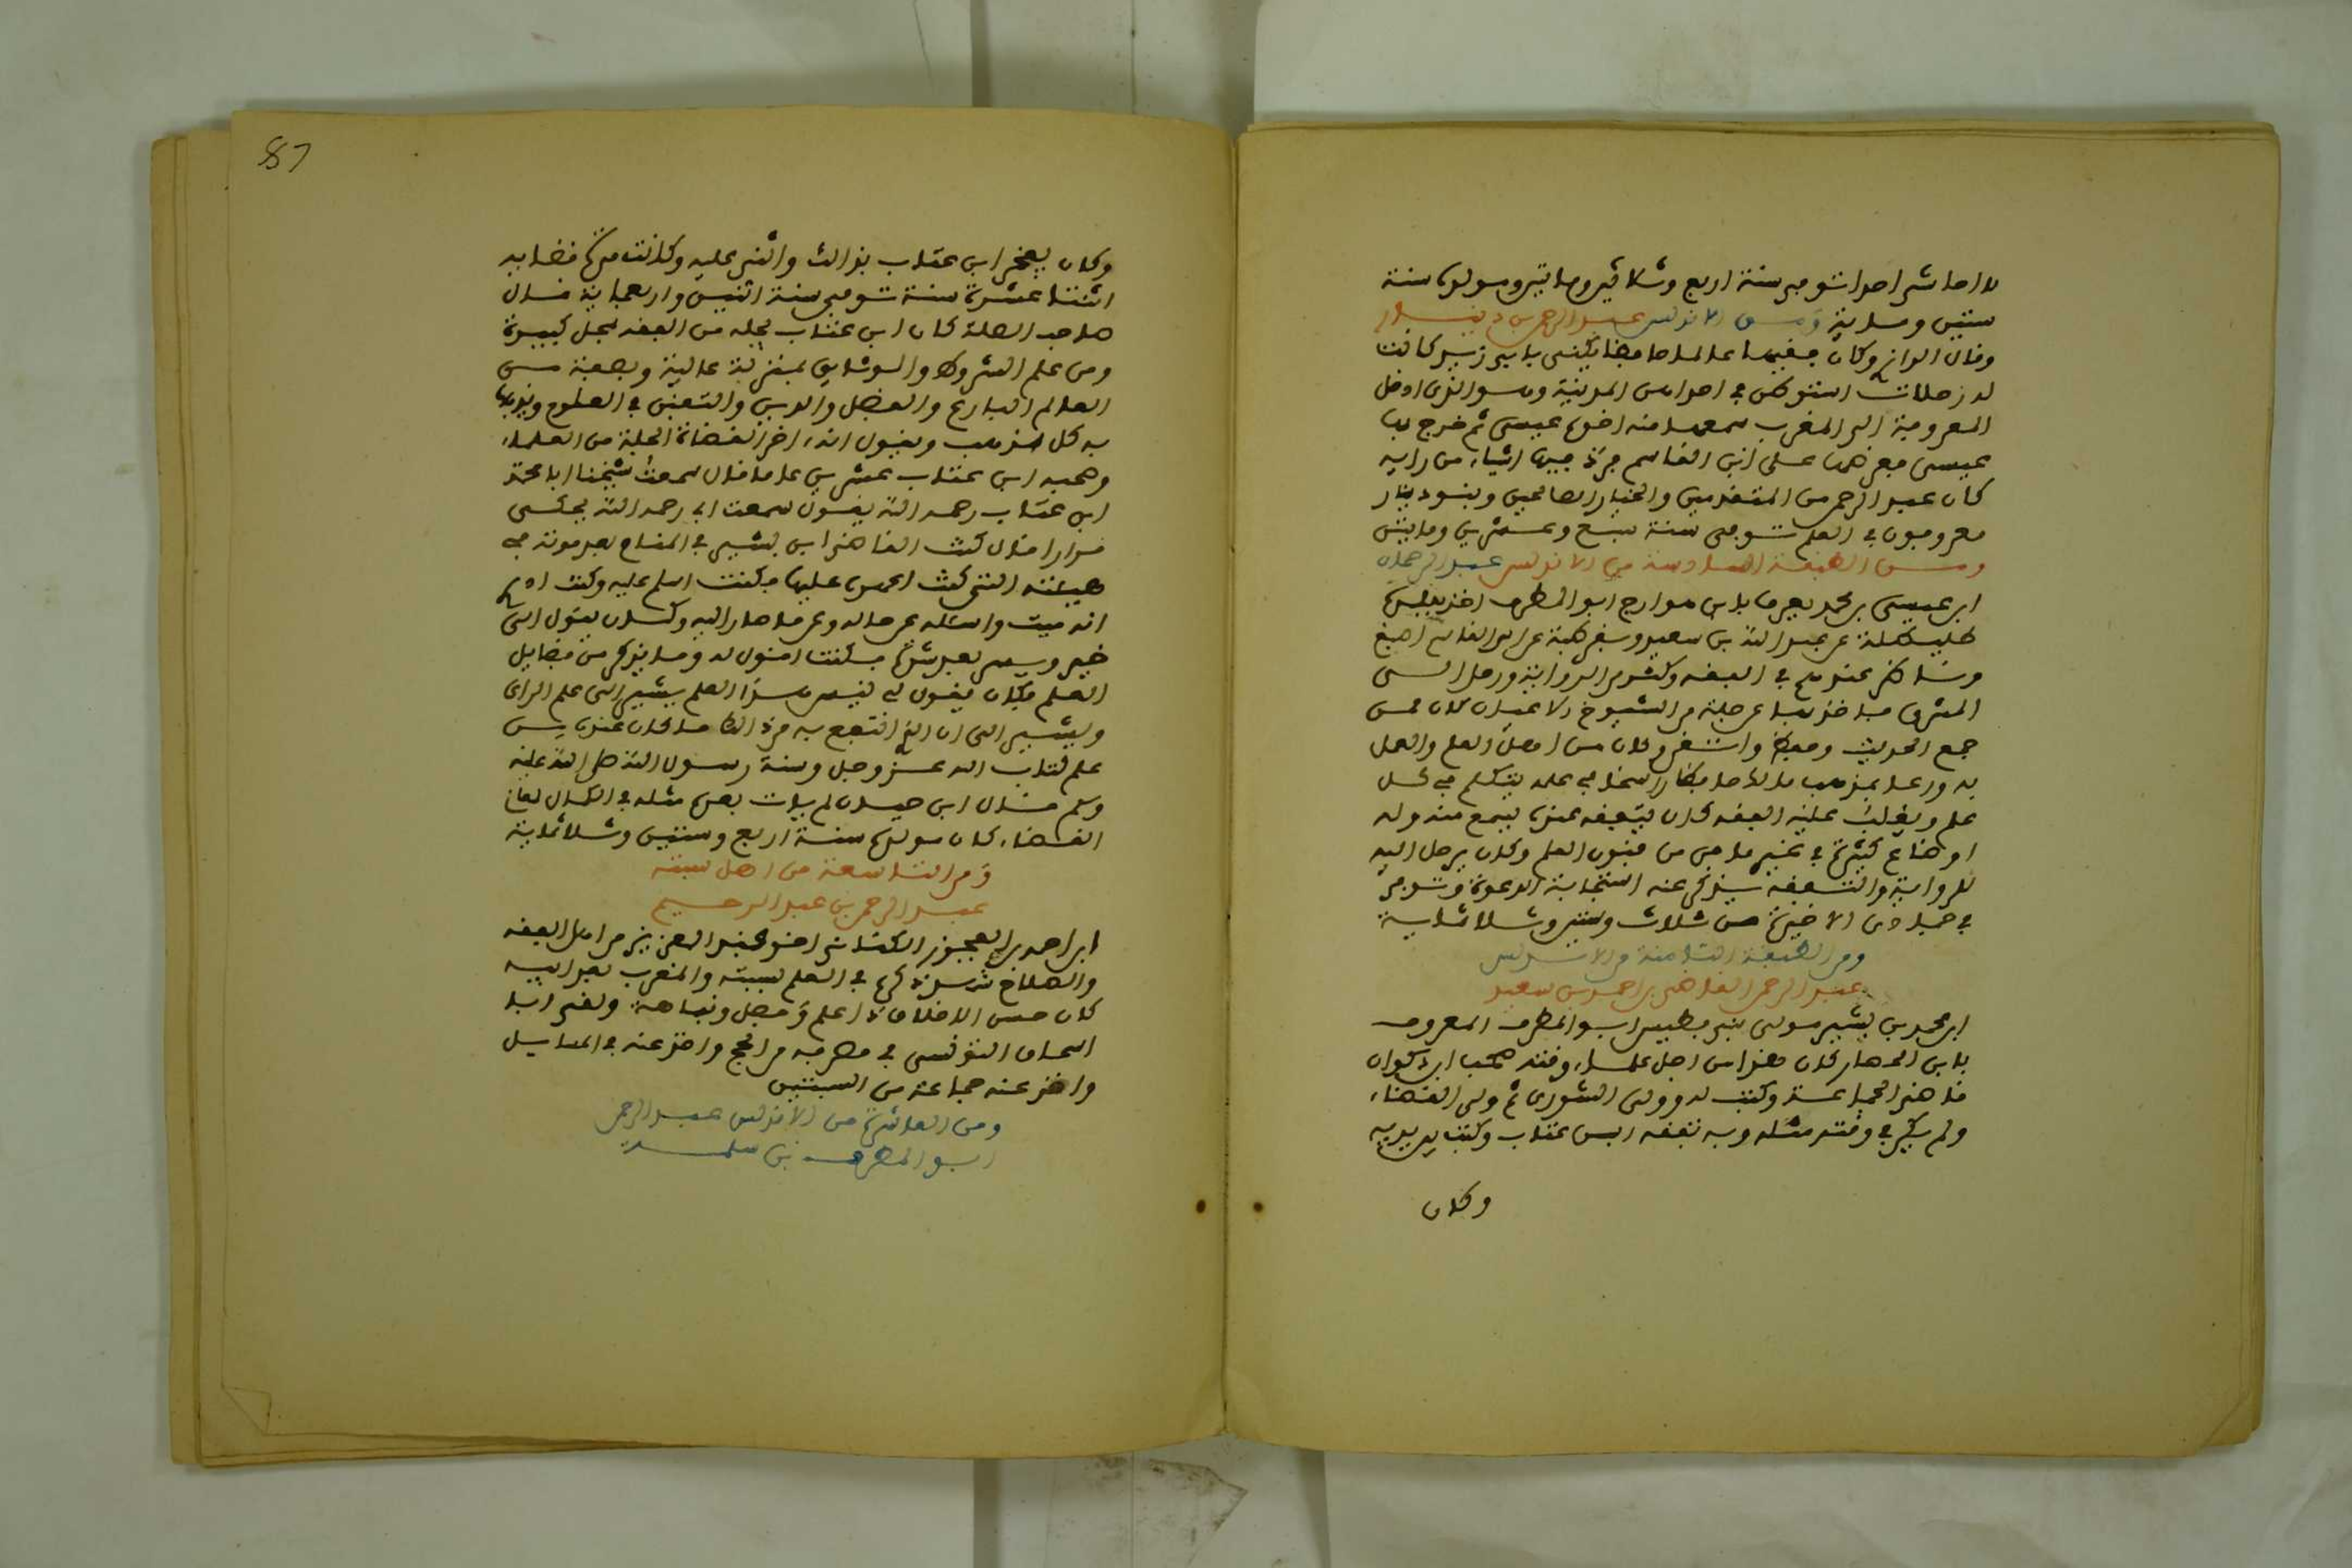 لا احاشي احدا توفي سنة اربع وثلاثين ومايتين ومولده سنة
ستين وماية ومن الاندلس عبد الرحمن بن دينار
وقال الرازي وكان فقيها عالما حافظا يكنى بابي زيد كانت
له رحلات استوطن في احداهن المدينة وهو الذي ادخل
المعروفة الى المغرب سمعها منه اخوه عيسى ثم خرج بها
عيسى فعرضها على ابن القاسم فرد فيها اشياء من رايه
كان عبد الرحمن من المتقدمين والخيار الصالحين وبنو دينار
معروفون في العلم توفي سنة سبع وعشرين ومايتين
ومن الطبقة السادسة من الاندلس عبد الرحمان
ابن عيسى بن محمد يعرف بابن مدارج ابو المطرف اخذ ببلده
طليطلة عن عبد الله بن سعيد وبقرطبة عن ابن القاسم اصبغ
المشرق فاخذ بها عن جلة من الشيوخ الاعيان كان ممن
جمع الحديث وكان من اهل العلم والعمل
به ورعا بمذهب مالك حافظا راسخا في علمه يتكلم في كل
علم ويغلب عليه الفقه كان يتفقه عنده يسمع منه وله
اوضاع كثيرة في غير ما فن من فنون العلم وكان يرحل اليه
للرواية والتفقه يذكر عنه استجابة الدعوة وتوفي
في جمادى الاخيرة من ثلاث وستين وثلاثماية
ومن الطبقة الثامنة من الاندلس
عبد الرحمن القاضي بن احمد بن سعيد
ابن محمد بن بشير مولى بني فطيس ابو المطرف المعروف
بابن الحصار كان هذا من اجل علماء وقته صحب ابن ذكوان
قاضي الجماعة وكتب له وولي الشورى ثم ولي القضاء
ولم يكن في وقته مثله وبه تفقه ابن عتاب وكتب بين يديه
وكان
وكان يفخر ابن عتاب بذالك واثنى عليه وكانت مدة قضايه
اثنتا عشرة سنة توفي سنة اثنين واربعماية قال
صاحب الصلة كان ابن عتاب يجله من الفقه بمحل كبيرة
ومن علم الشروط والوثايق بمنزلة عالية ويصفه من
العلم البارع والفضل والدين والتفنن في العلوم
به كل مذهب ويقول انه اخر القضاة الجلة من العلماء
وصحبه ابن عتاب عشرين عاما قال سمعت شيخنا ابا محمد
ابن عتاب رحمه الله يقول سمعت ابي رحمه الله يحكي
مرارا قال كنت القاضي ابن بشير في المنام بعد موته في
هيئته التي كنت اعهده عليها فكنت اسلم عليه وكنت ادري
انه ميت واسئله عن حاله وعن ما صار اليه وكان يقول الى
خير ويسر بعد شدة فكنت اقول له وما يذكر من فضايل
العلم فكان يقول لي ليس هذا العلم يشير الى علم الراي
ويشير الى ان الذي انتفع به من ذالك ما كان عنده من
علم كتاب الله عز وجل وسنة رسول الله صلى الله عليه
وسلم قال ابن حيان لم يات بعده مثله في الكمال لمعاني
القضاء كان مولده سنة اربع وستين وثلاثماية
ومن التاسعة من اهل سبتة
عبد الرحمن بن عبد الرحيم
ابن احمد بن العجوز الكتامي اخو عبد العزيز من اهل الفقه
والصلاح شهر ذكره في العلم بسبتة والمغرب بعد ابيه
كان حسن الاخلاق ذا علم وفضل ونباهة ولقي ابا
اسحاق التونسي في منصرفه من الحج واخذ عنه في المسايل
واخذ عنه جماعة من السبتيين
ومن العاشرة من الاندلس عبد الرحمن
ابو المطرف بن سلمة